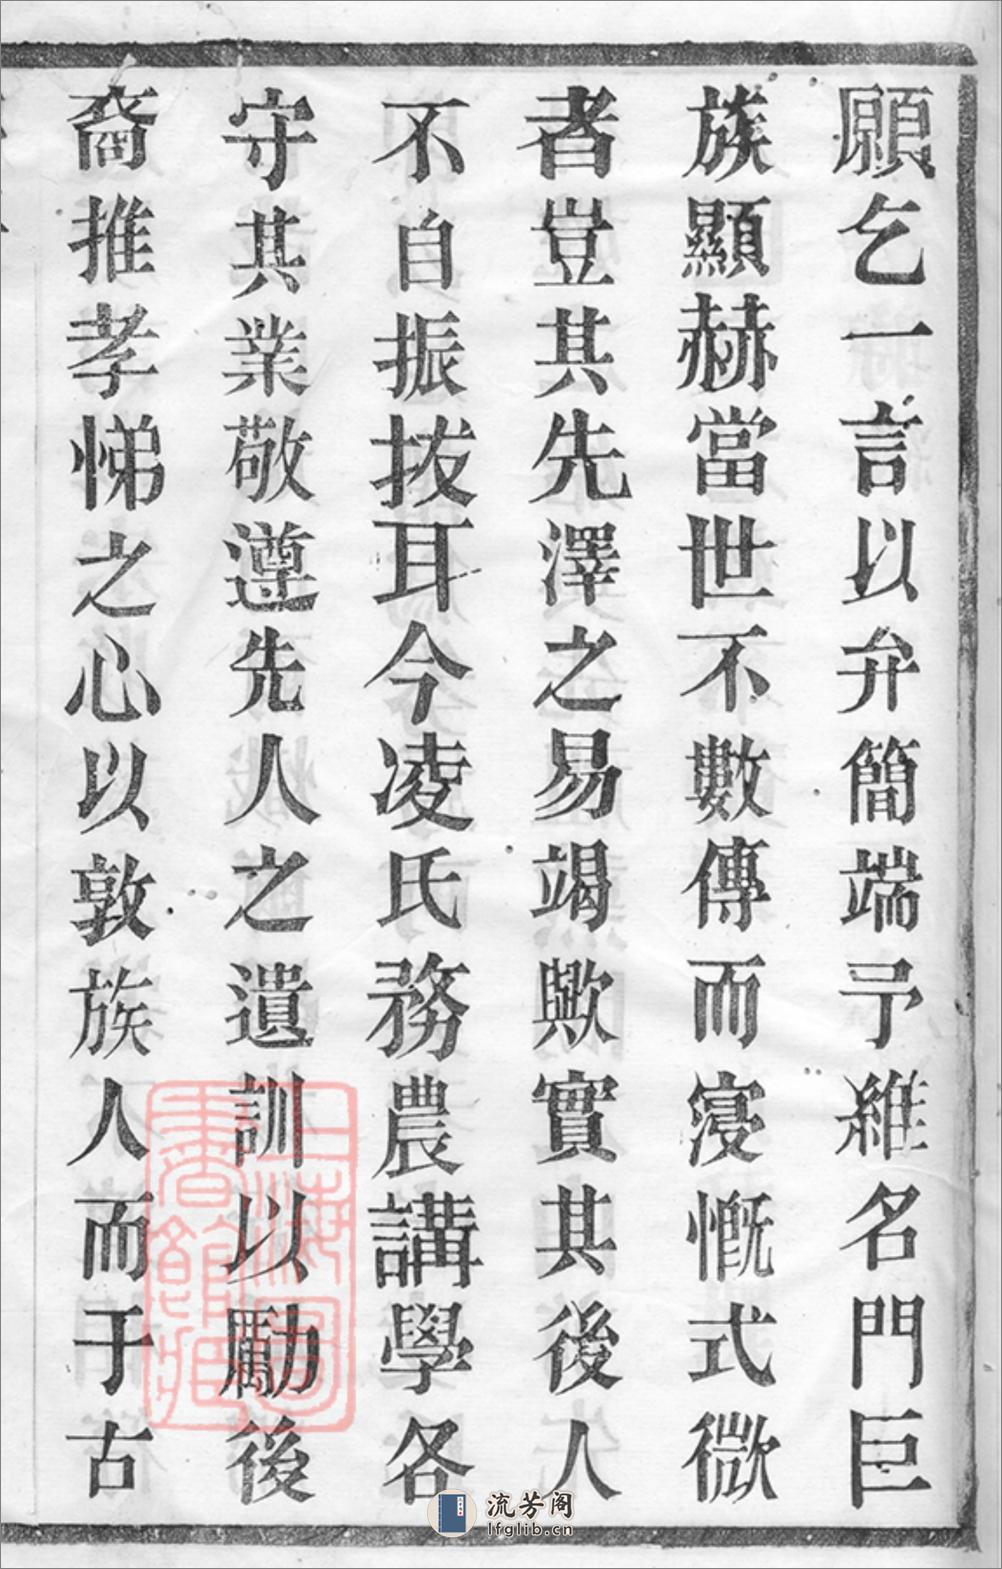 願乞一言以弁簡端予維名門巨
族顯赫當世不數傳而寖慨式微
者豈其先澤之易竭歟實其後人
不自振拔耳今凌氏務農講學各
守其業敬遵先人之遺訓以勵後
裔推孝悌之心以敦族人而于古
上海圖書館藏
流芳阁
lfglib.cn